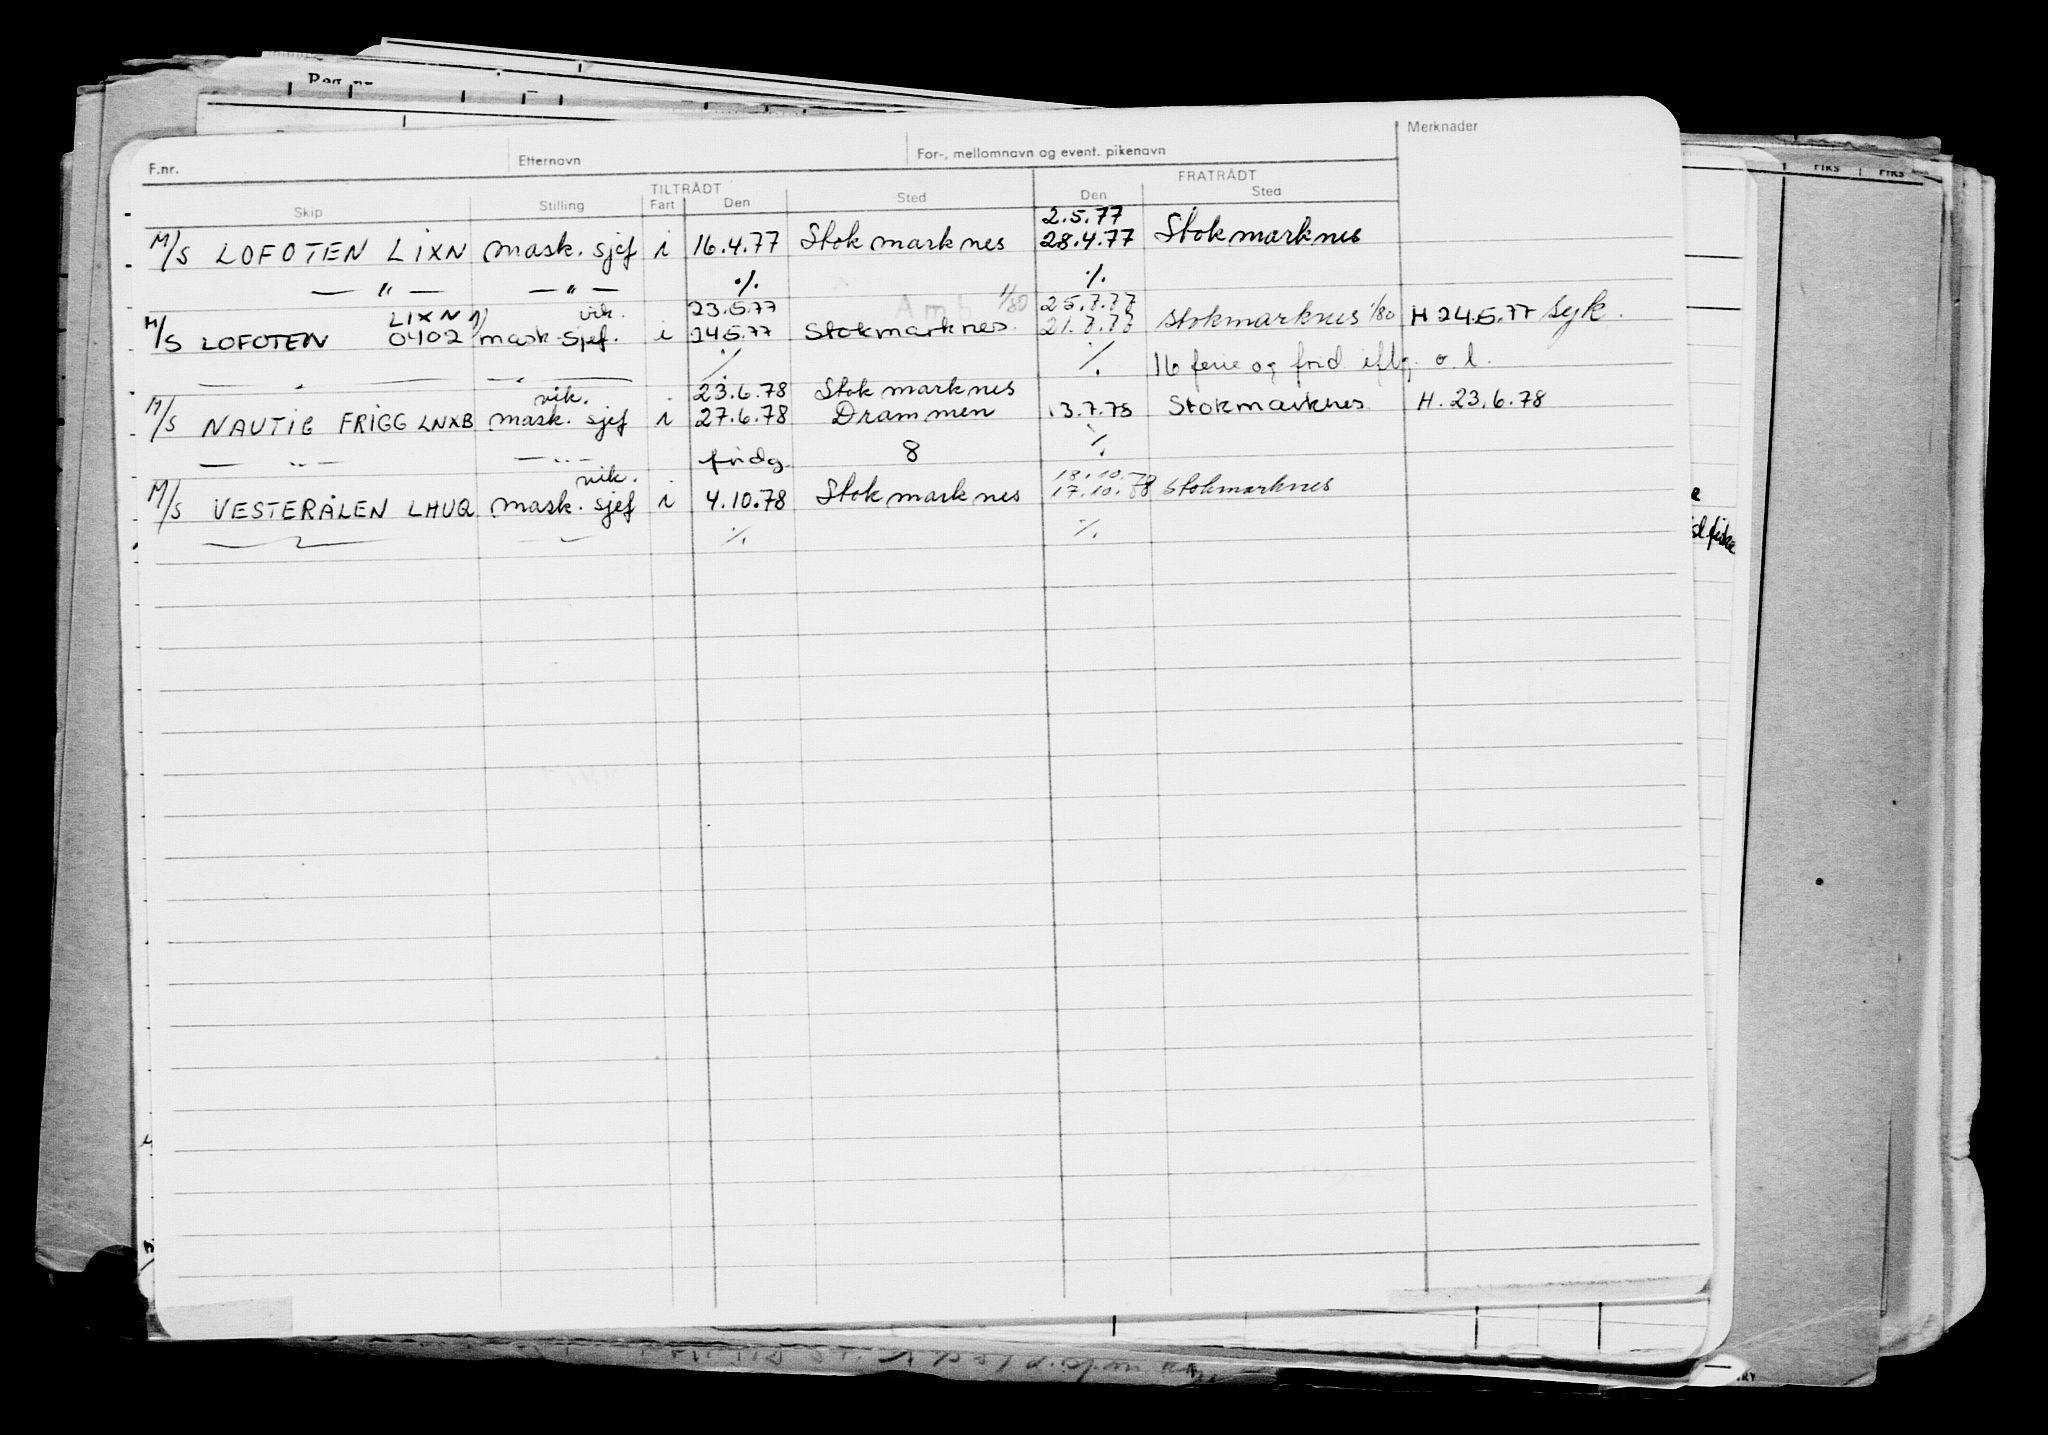 Reg. nr.
F.nr. Etternavn For-, mellomnavn og event. pikenavn Merknader
TILTRÅDT FRATRÅDT
Skip Stilling Fart Den Sted Den Sted
2.5.77
M/S LOFOTEN LIXN mask. sjef i 16.4.77 Stokmarknes 28.4.77 Stokmarknes
— " — — " — ٪ ٪
LIXN vik. 23.5.77 1/80 25.7.77
M/S LOFOTEN 0402 1) mask sjef. i 24.5.77 Stokmarknes. 21.7.77 Stokmarknes 1/80 H 24.5.77 Syk.
— " — — " — ٪ ٪ 16 ferie og frid. iflg. o. l.
vik. 23.6.78 Stokmarknes
M/S NAUTIC FRIGG LNXB mask. sjef i 27.6.78 Drammen 13.7.78 Stokmarknes H. 23.6.78
— " — — " — fridg. 8 ٪
vik. 18.10.78
M/S VESTERÅLEN LHUQ mask. sjef i 4.10.78 Stokmarknes 17.10.78 Stokmarknes
٪ ٪
FIKS FIKS